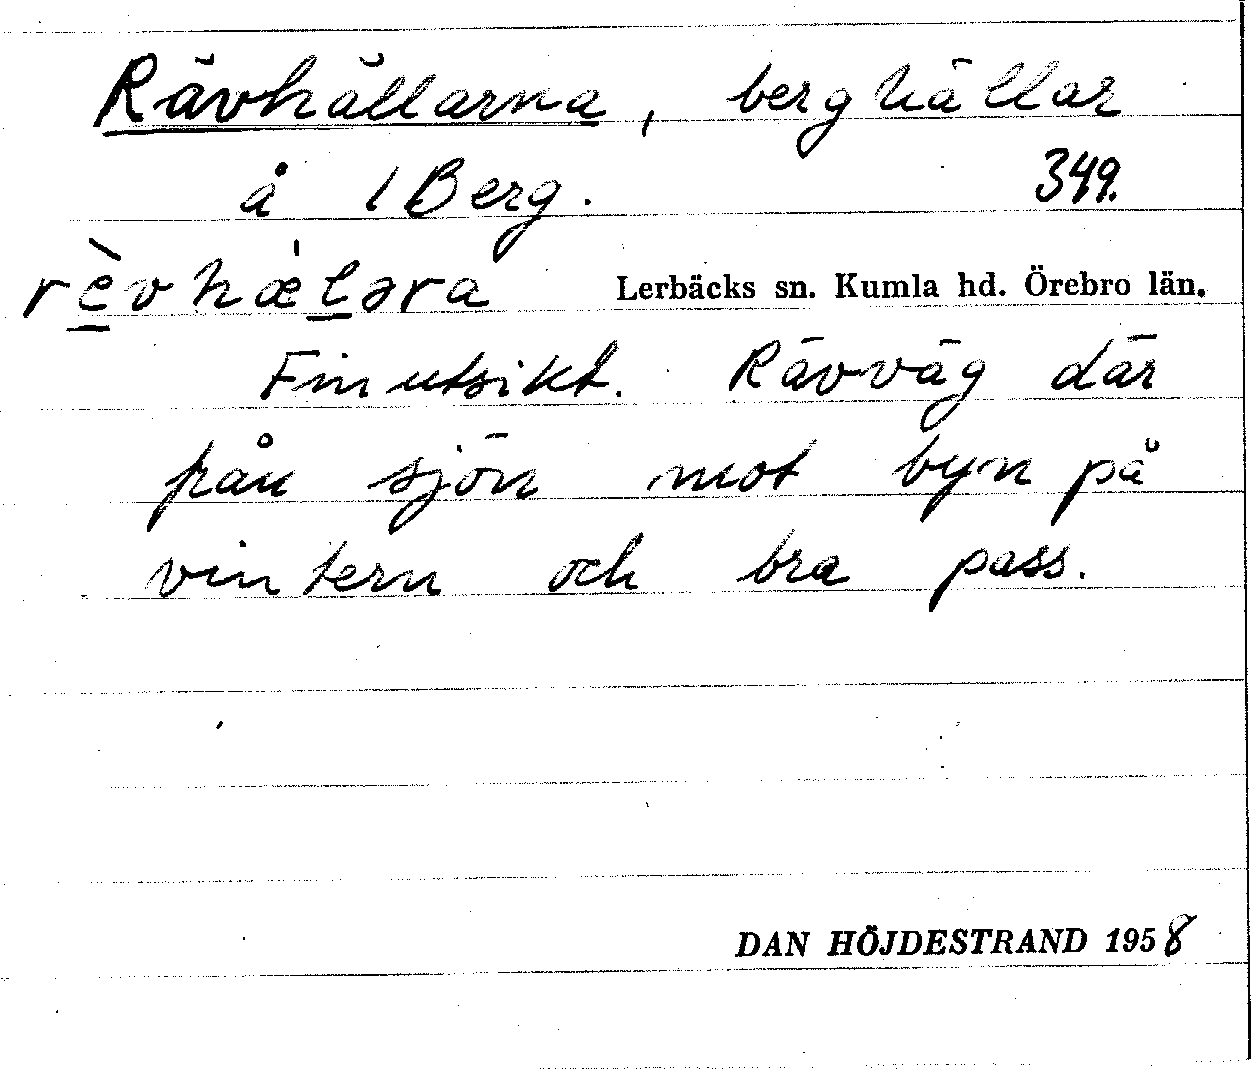 Rävhällarna, berghällar
å 1 Berg. 349.
rèvhæ̀lǝra Lerbäcks sn. Kumla hd. Örebro län.
Fin utsikt. Rävväg där
från sjön mot byn på
vintern och bra pass.
DAN HÖJDESTRAND 1958